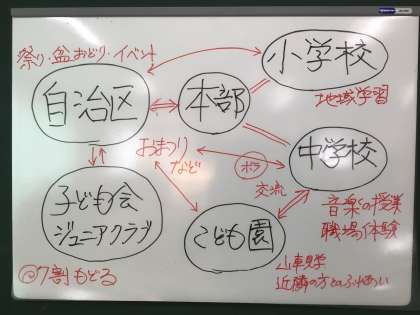 祭り・盆おどり・イベント
小学校
自治区
本部
地域学習
おまつり
など
中学校
ボラ
交流
子ども会
ジュニアクラブ
こども園
音楽の授業
職場体験
@7割もどる
山車見学
近隣の方とのふれあい